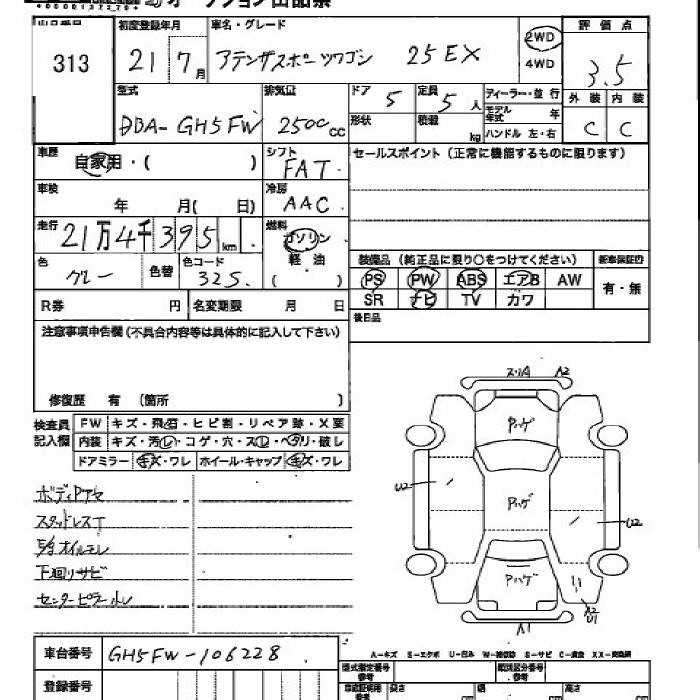 オークション出品票
出品番号 初度登録年月 車名・グレード 評価点
313 21 7月 アテンザスポーツワゴン 25EX 2WD 4WD 3.5
型式 排気量 ドア 定員 ディーラー・並行 外装 内装
DBA-GH5FW 2500cc 5 5人 モデル年式 年 C C
形状 積載 kg ハンドル 左・右
車歴 自家用・( ) シフト FAT セールスポイント (正常に機能するものに限ります)
車検 年 月( 日) 冷房 AAC
走行 21万4千395km 燃料 ガソリン
軽油
( )
色 グレー 色替 色コード 32S 装備品 (純正品に限り○をつけてください) 新車保証書
PS PW ABS エアB AW 有・無
R券 円 名変期限 月 日 SR ナビ TV カワ
後日品
注意事項申告欄 (不具合内容等は具体的に記入して下さい)
修復歴 有 (箇所 )
検査員 記入欄 FW キズ・飛石・ヒビ割・リペア跡・X要
内装 キズ・汚レ・コゲ・穴・スレ・ヘタリ・破レ
ドアミラー キズ・ワレ ホイール・キャップ キズ・ワレ
A2
Pハゲ
U2
Pハゲ
U2
Pハゲ
A2
U1
A1
ボディPアセ
スタッドレスT
下廻りサビ
センターピラーハレ
車台番号 GH5FW-106228
登録番号
A-キズ E-エクボ U-凹み W-補修跡 S-サビ C-腐食 XX-交換済
型式指定番号 参考 類別区分番号 参考
長さ cm 幅 cm 高さ cm